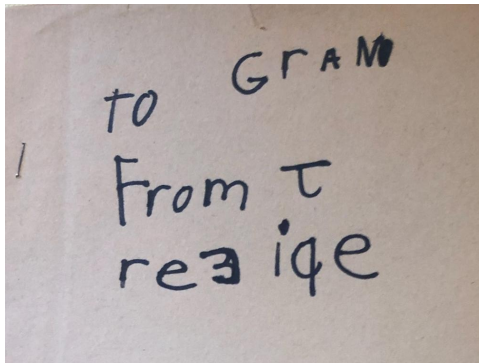 TO GrAN
From T
reeiqe